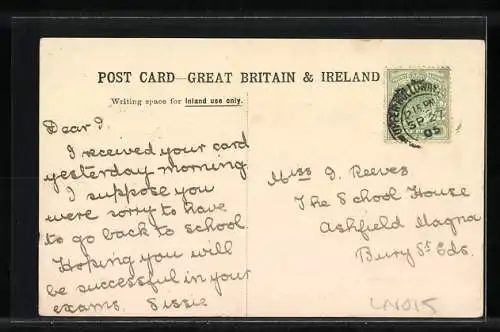 POST CARD—GREAT BRITAIN & IRELAND
Writing space for Inland use only.
Dear I.
I received your card
yesterday morning
I suppose you
were sorry to have
to go back to school.
Hoping you will
be successful in your
exams. Sissie
UPPER HOLLOWAY
05
Miss I. Reeves
The School House
Ashfield Magna
Bury St Eds.